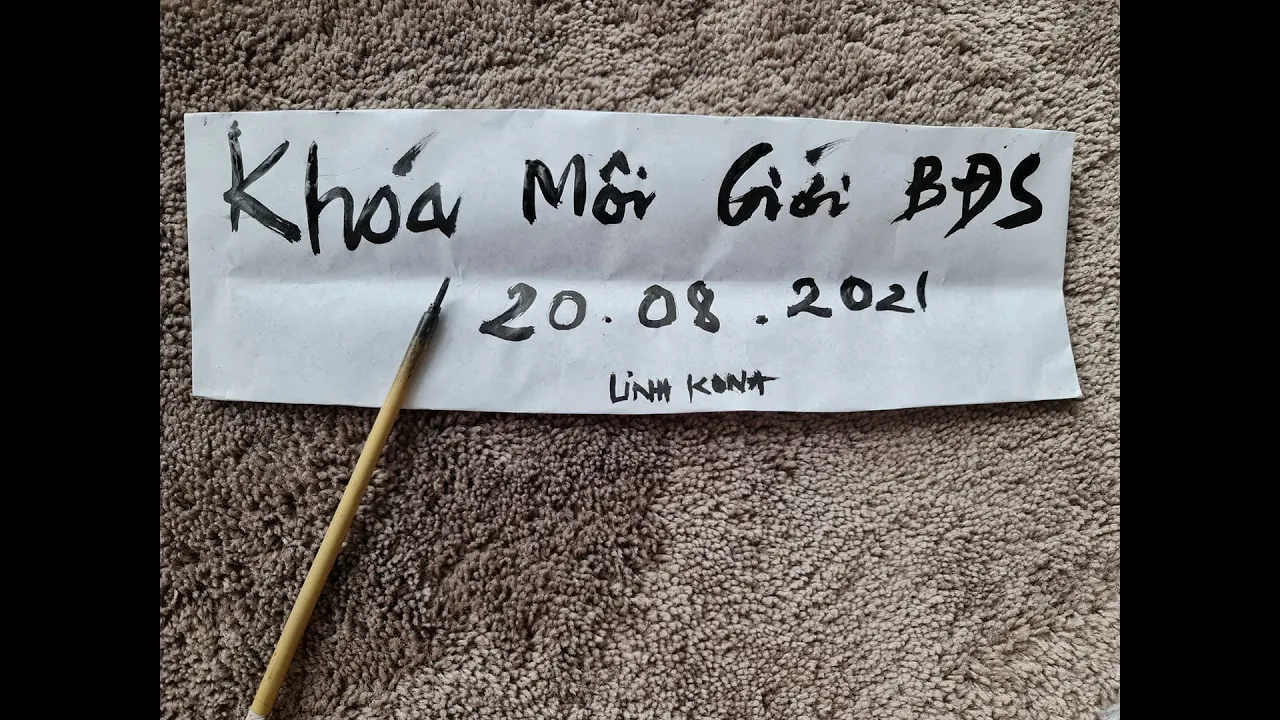 Khóa Môi Giới BĐS
20.08.2021
LINH KONA